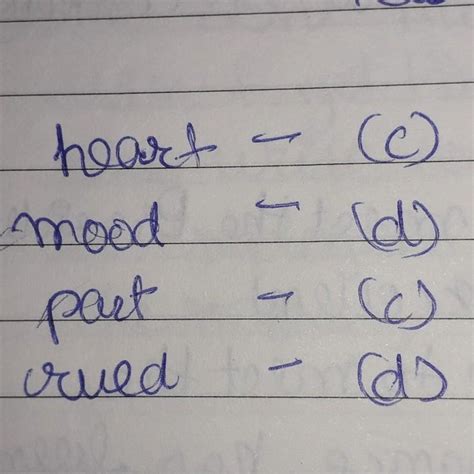 heart - (c)
mood - (d)
part - (c)
rued - (d)